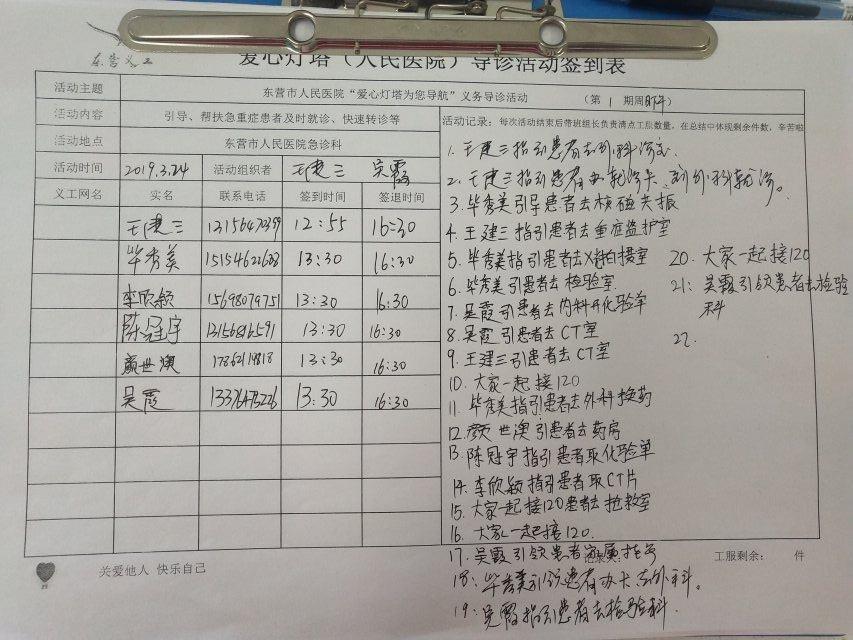 东营义工
爱心灯塔（人民医院）导诊活动签到表
活动主题 东营市人民医院“爱心灯塔为您导航”义务导诊活动 （第 1 期周 ）
活动内容 引导、帮扶急重症患者及时就诊、快速转诊等
活动地点 东营市人民医院急诊科
活动时间 2019.3.24 活动组织者 王建三 吴霞
义工网名 实名 联系电话 签到时间 签退时间
王建三 12:55 16:30
毕秀美 13:30 16:30
李欣颖 15698079751 13:30 16:30
陈冠宇 13:30 16:30
颜世澳 13:30 16:30
吴霞 13:30 16:30
活动记录：每次活动结束后带班组长负责清点工服数量，在总结中体现剩余件数，辛苦啦
1. 王建三指引患者去外科
2. 王建三指引患者办 卡，到外科
3. 毕秀美引导患者去核磁共振
4. 王建三指引患者去重症监护室
5. 毕秀美指引患者去X光拍摄室
6. 毕秀美引患者去检验室
7. 吴霞引患者去内科开化验单
8. 吴霞引患者去CT室
9. 王建三引患者去CT室
10. 大家一起接120
11. 毕秀美指引患者去外科换药
12. 颜世澳引患者去药房
13. 陈冠宇指引患者取化验单
14. 李欣颖指引患者取CT片
15. 大家一起接120患者去抢救室
16. 大家一起接120.
17. 吴霞引领患者家属挂号
18. 毕秀美引领患者办卡去外科。
19. 吴霞指引患者去检验科.
20. 大家一起接120
21: 吴霞引领患者去检验
科
22.
关爱他人 快乐自己
工服剩余： 件